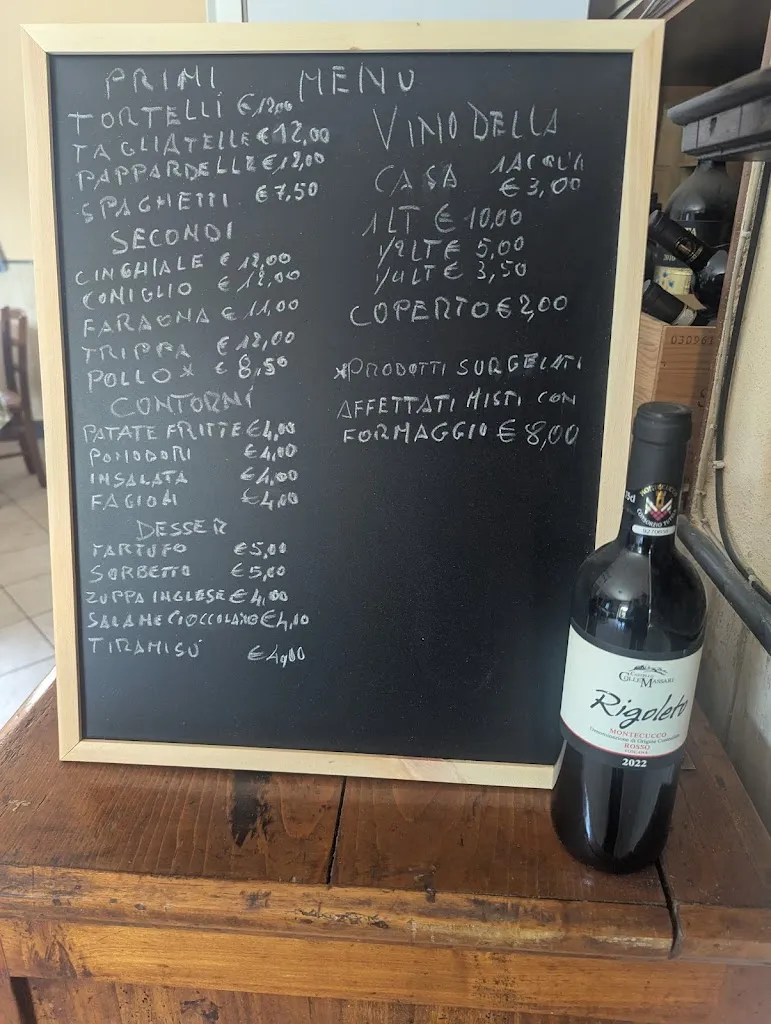 PRIMI
TORTELLI €12,00
TAGLIATELLE €12,00
PAPPARDELLE €12,00
SPAGHETTI €7,50
SECONDI
CINGHIALE €12,00
CONIGLIO €12,00
FARAONA €11,00
TRIPPA €12,00
POLLO* €8,50
CONTORNI
PATATE FRITTE €4,00
POMODORI €4,00
INSALATA €4,00
FAGIOLI €4,00
DESSER
TARTUFO €5,00
SORBETTO €5,00
ZUPPA INGLESE €4,00
SALAME CIOCCOLATO €4,00
TIRAMISÚ €4,00
MENU
VINO DELLA
CASA 1ACQUA
€3,00
1LT €10,00
1/2LT € 5,00
1/4LT € 3,50
COPERTO €2,00
*PRODOTTI SURGELATI
AFFETTATI MISTI CON
FORMAGGIO €8,00
COLLEMASSARI
Rigoleto
MONTECUCCO
Denominazione di Origine Controllata
ROSSO
TOSCANA
2022
030961